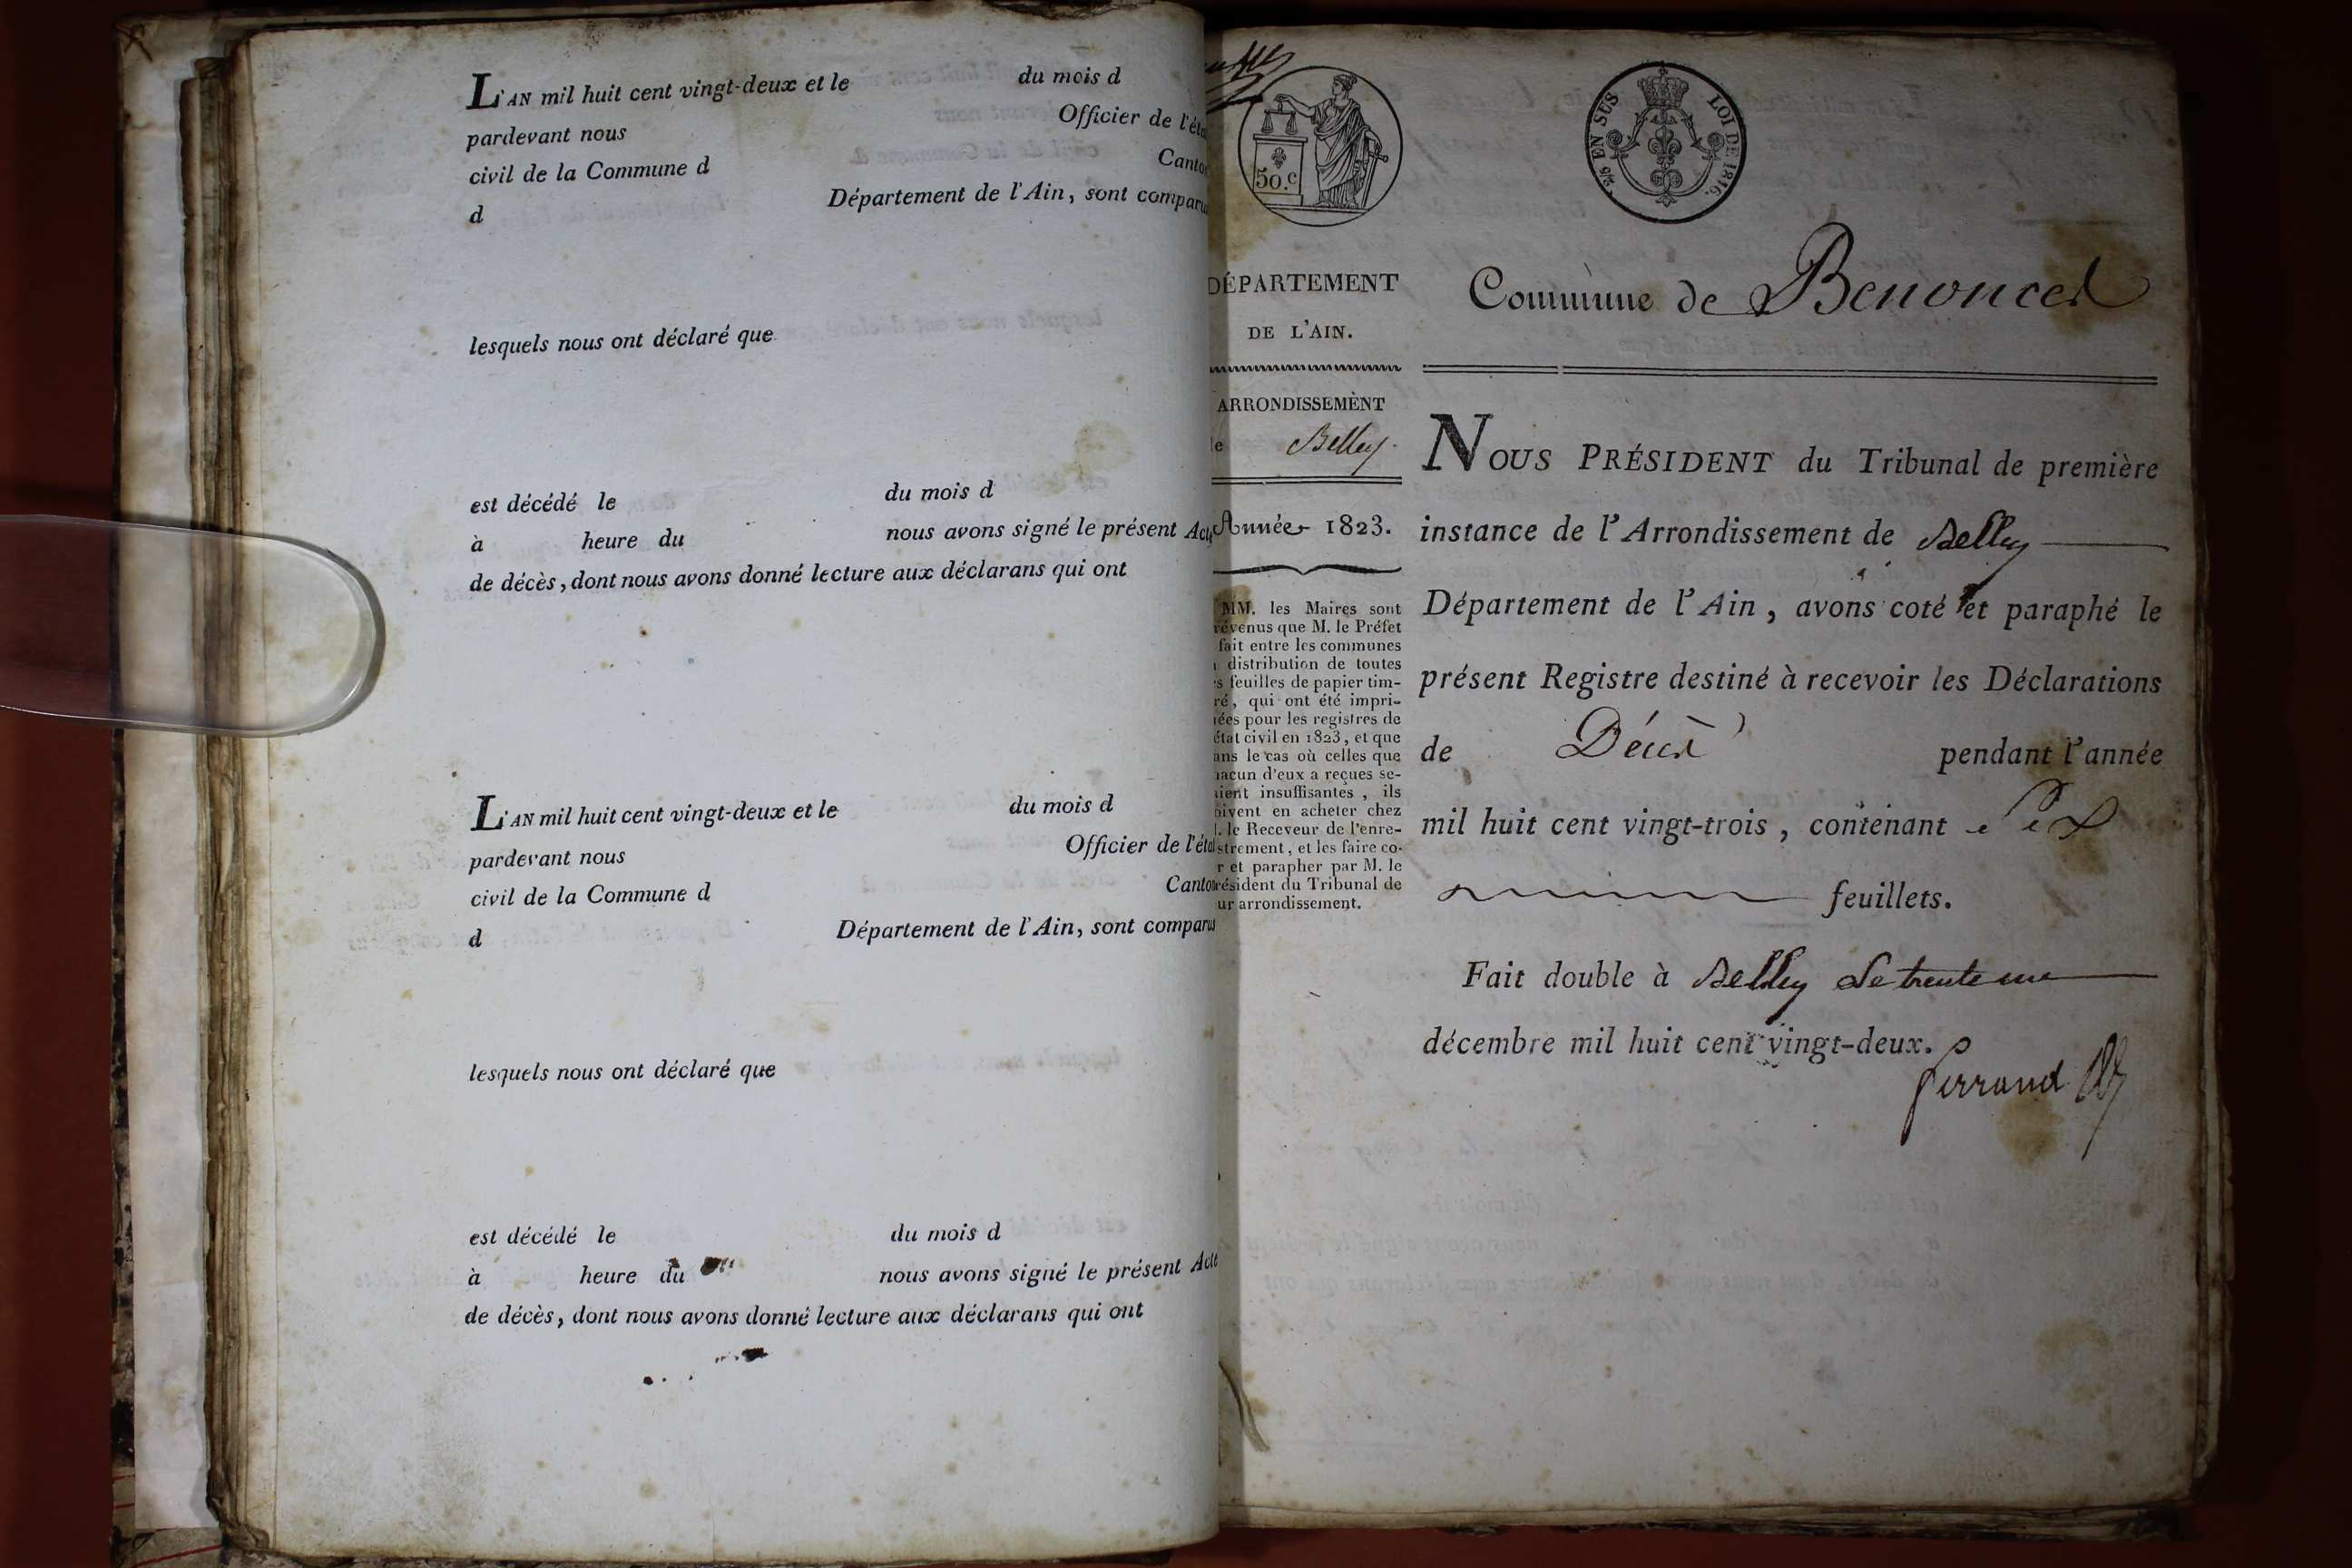 L'AN mil huit cent vingt-deux et le du mois d
pardevant nous Officier de l'éta
civil de la Commune d Canto
d Département de l'Ain, sont comparu
lesquels nous ont déclaré que
est décédé le du mois d
à heure du nous avons signé le présent Acte
de décès, dont nous avons donné lecture aux déclarans qui ont
L'AN mil huit cent vingt-deux et le du mois d
pardevant nous Officier de l'éta
civil de la Commune d Canto
d Département de l'Ain, sont comparu
lesquels nous ont déclaré que
est décédé le du mois d
à heure du nous avons signé le présent Acte
de décès, dont nous avons donné lecture aux déclarans qui ont
50.c
EN SUS LOI DE 1816.
DÉPARTEMENT
DE L'AIN.
ARRONDISSEMENT
de Belley.
Année 1823.
MM. les Maires sont
révenus que M. le Préfet
fait entre les communes
a distribution de toutes
es feuilles de papier tim-
ré, qui ont été impri-
ées pour les registres de
état civil en 1823, et que
ans le cas où celles que
hacun d'eux a reçues se-
aient insuffisantes, ils
oivent en acheter chez
M. le Receveur de l'enre-
strement, et les faire co-
r et parapher par M. le
résident du Tribunal de
ur arrondissement.
Commune de Benonces
NOUS PRÉSIDENT du Tribunal de première
instance de l'Arrondissement de Belley
Département de l'Ain, avons coté et paraphé le
présent Registre destiné à recevoir les Déclarations
de Décès pendant l'année
mil huit cent vingt-trois, contenant Six
feuillets.
Fait double à Belley Le trente un
décembre mil huit cent vingt-deux.
perrand